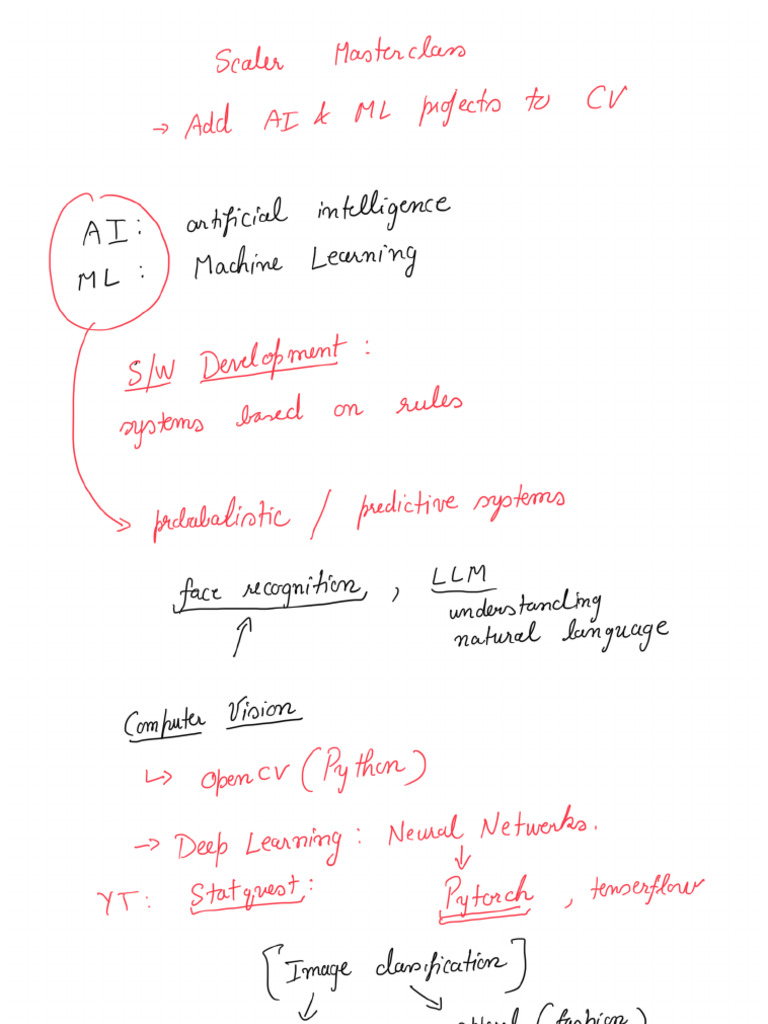 Scaler Masterclass
→ Add AI & ML projects to CV
AI: artificial intelligence
ML: Machine Learning
S/W Development:
systems based on rules
probabalistic / predictive systems
face recognition, LLM
understanding
natural language
Computer Vision
↳ OpenCV (Python)
→ Deep Learning: Neural Networks.
YT: Statquest: Pytorch, tenserflow
[Image classification]
(fashion)